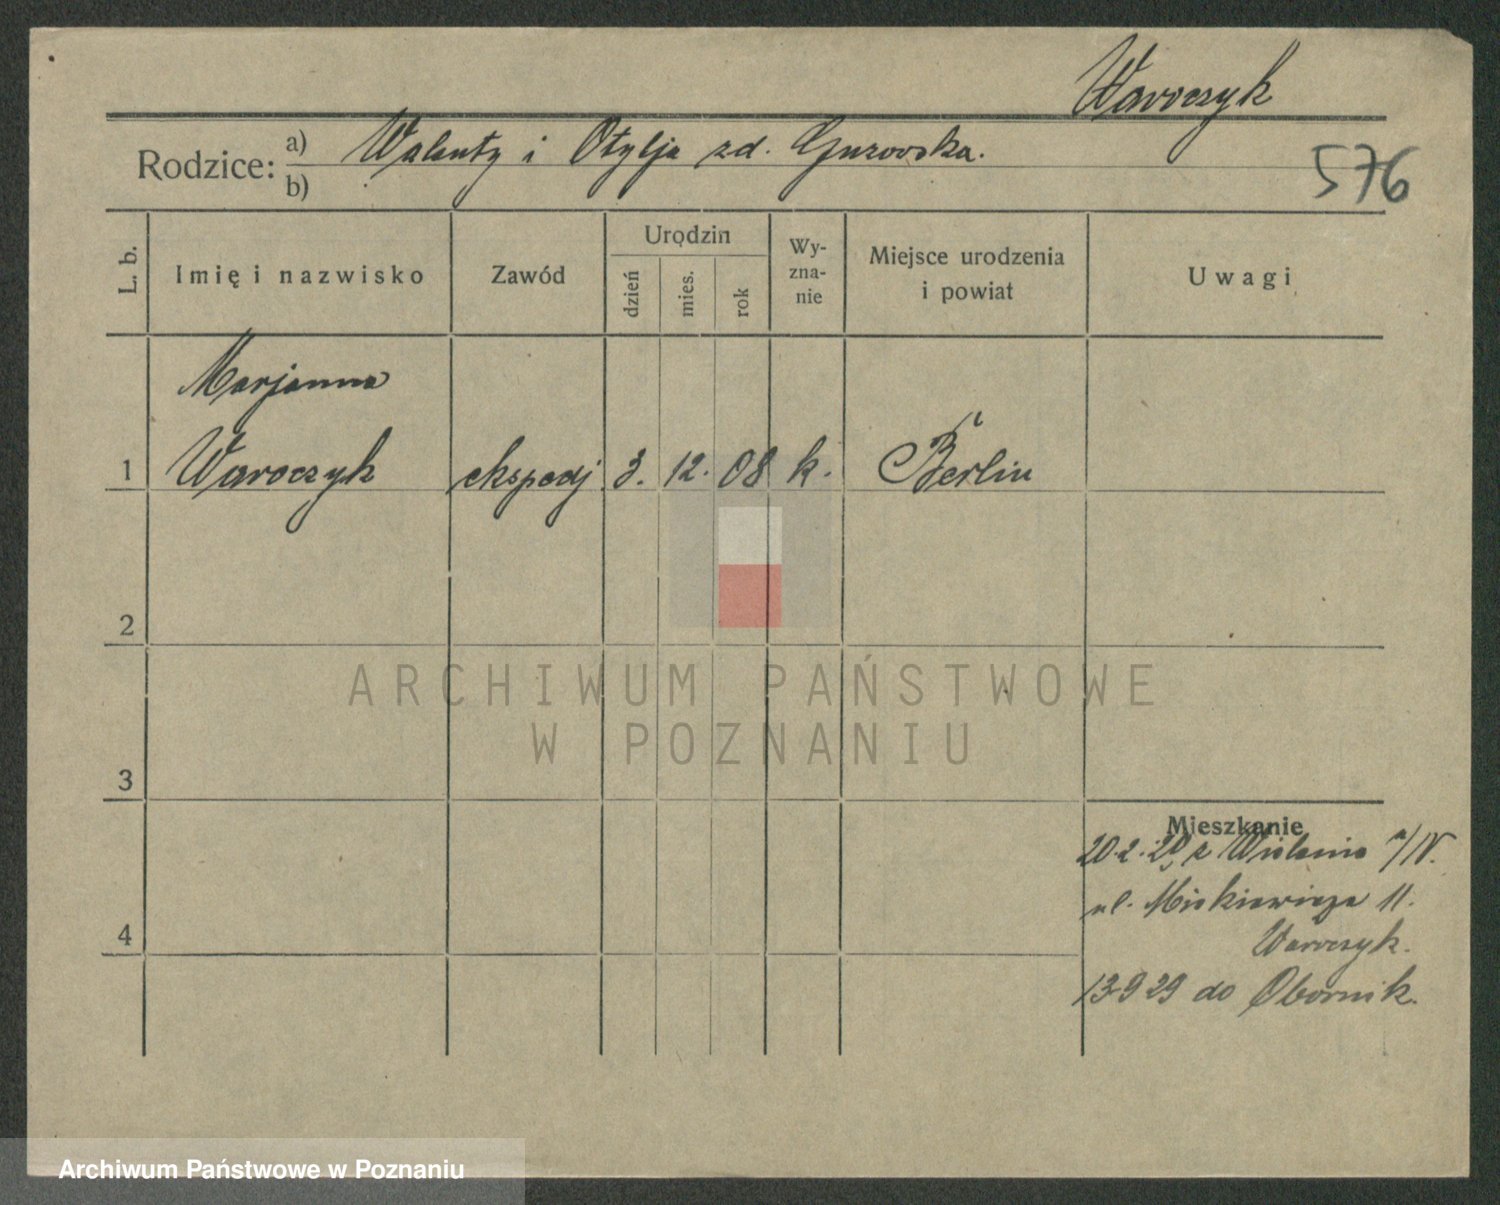 Waroczyk
Rodzice: a) Walenty i Otylja zd. Gurowska.
b)
576
L. b.
Imię i nazwisko
Zawód
Urodzin
dzień
mies.
rok
Wy-
zna-
nie
Miejsce urodzenia
i powiat
Uwagi
Marjanna
1 Waroczyk ekspedj. 3. 12. 08 k. Berlin
2
ARCHIWUM PAŃSTWOWE
W POZNANIU
3
Mieszkanie
20.2.29 z Wielenia /IV.
4
ul. Mickiewicza 11.
Waroczyk.
13.9 29 do Obornik.
Archiwum Państwowe w Poznaniu